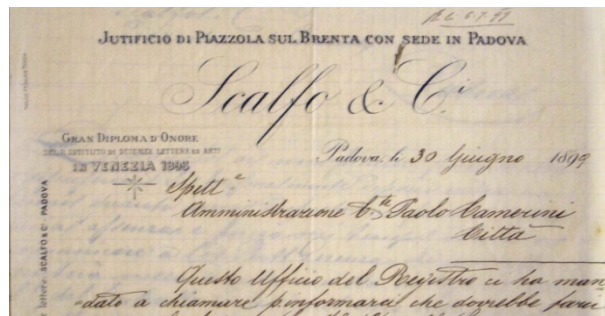 JUTIFICIO DI PIAZZOLA SUL BRENTA CON SEDE IN PADOVA
Scalfo & C.i
GRAN DIPLOMA D'ONORE
DEL R. ISTITUTO DI SCIENZE LETTERE ED ARTI
IN VENEZIA 1895
Padova, li 30 Giugno 1899
Spett.e
Amministrazione C.te Paolo Camerini
Città
Questo Ufficio del Registro ci ha man
=dato a chiamare p informarci che dovrebbe farci
SCALFO & C.i PADOVA